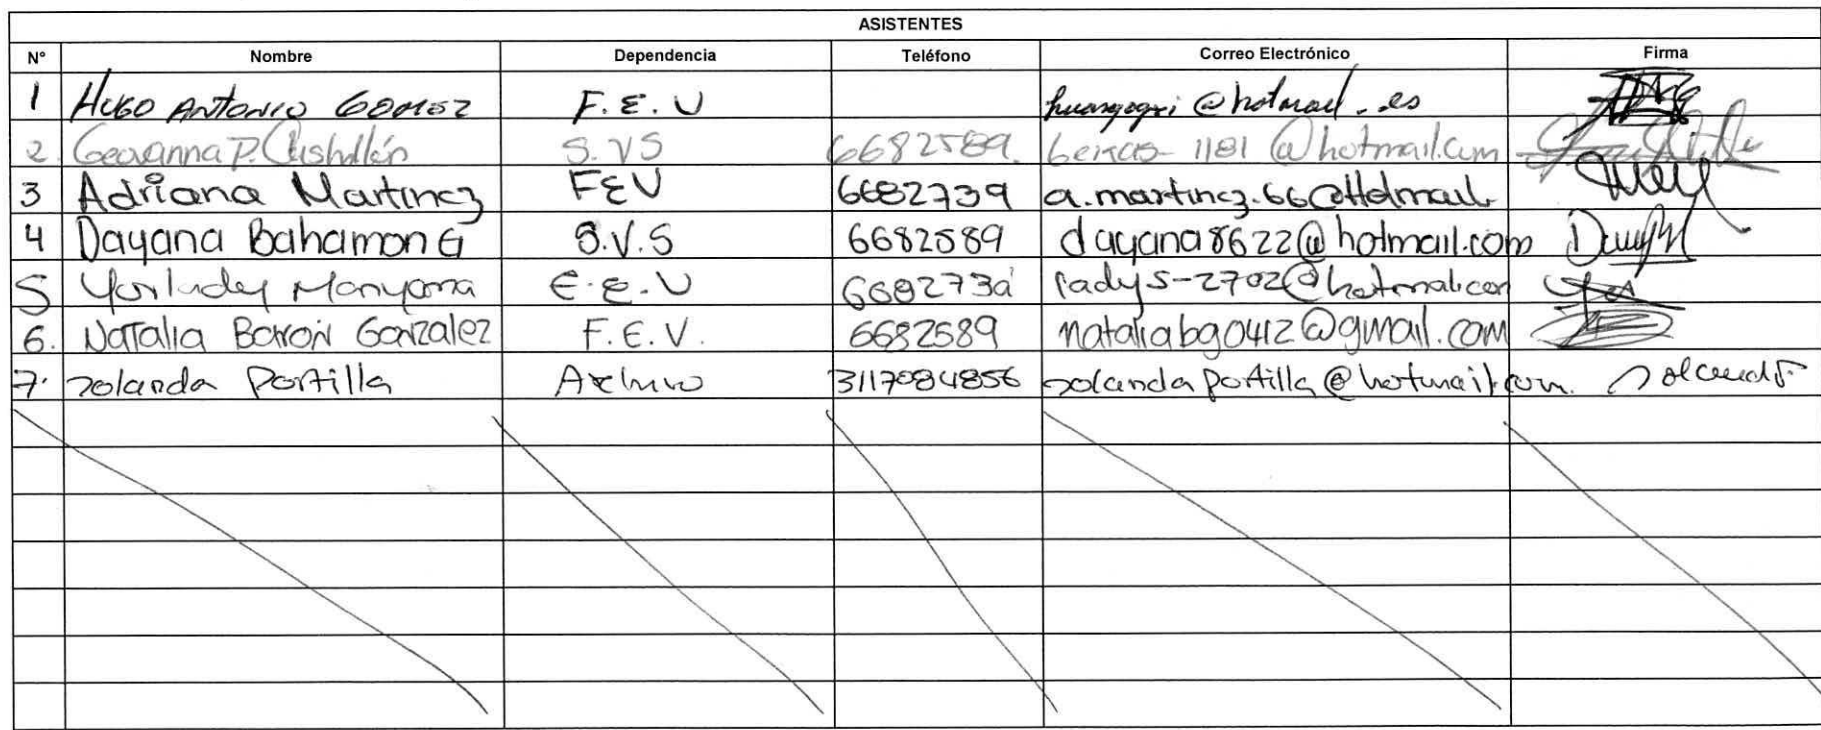 ASISTENTES
N° Nombre Dependencia Teléfono Correo Electrónico Firma
1 Hugo Antonio Gomez F.E.U @hotmail.es
2. Geovanna P. S.VS 6682589. 1181@hotmail.com
3 Adriana Martinez FEU 6682739 a.martinez.66@Hotmail.
4 Dayana Bahamon G S.V.S 6682589 dayana8622@hotmail.com
5 Yurlady Manyoma E.E.U 6682739 ladys-2702@hotmail.com
6. Natalia Baron Gonzalez F.E.V. 6682589 nataliabg0412@gmail.com
7. Yolanda Portilla Archivo 3117084856 yolandaportilla@hotmail.com. Yolanda P